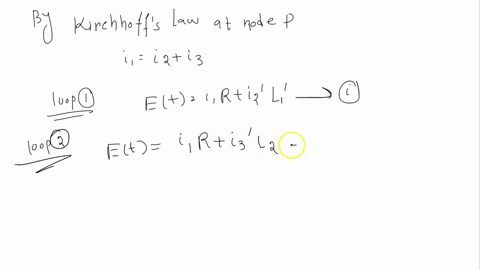 By Kirchhoff's Law at node P
i₁ = i₂ + i₃
loop ① E(t) = i₁R + i₂' L₁' → ⓘ
loop ② E(t) = i₁R + i₃' L₂ -